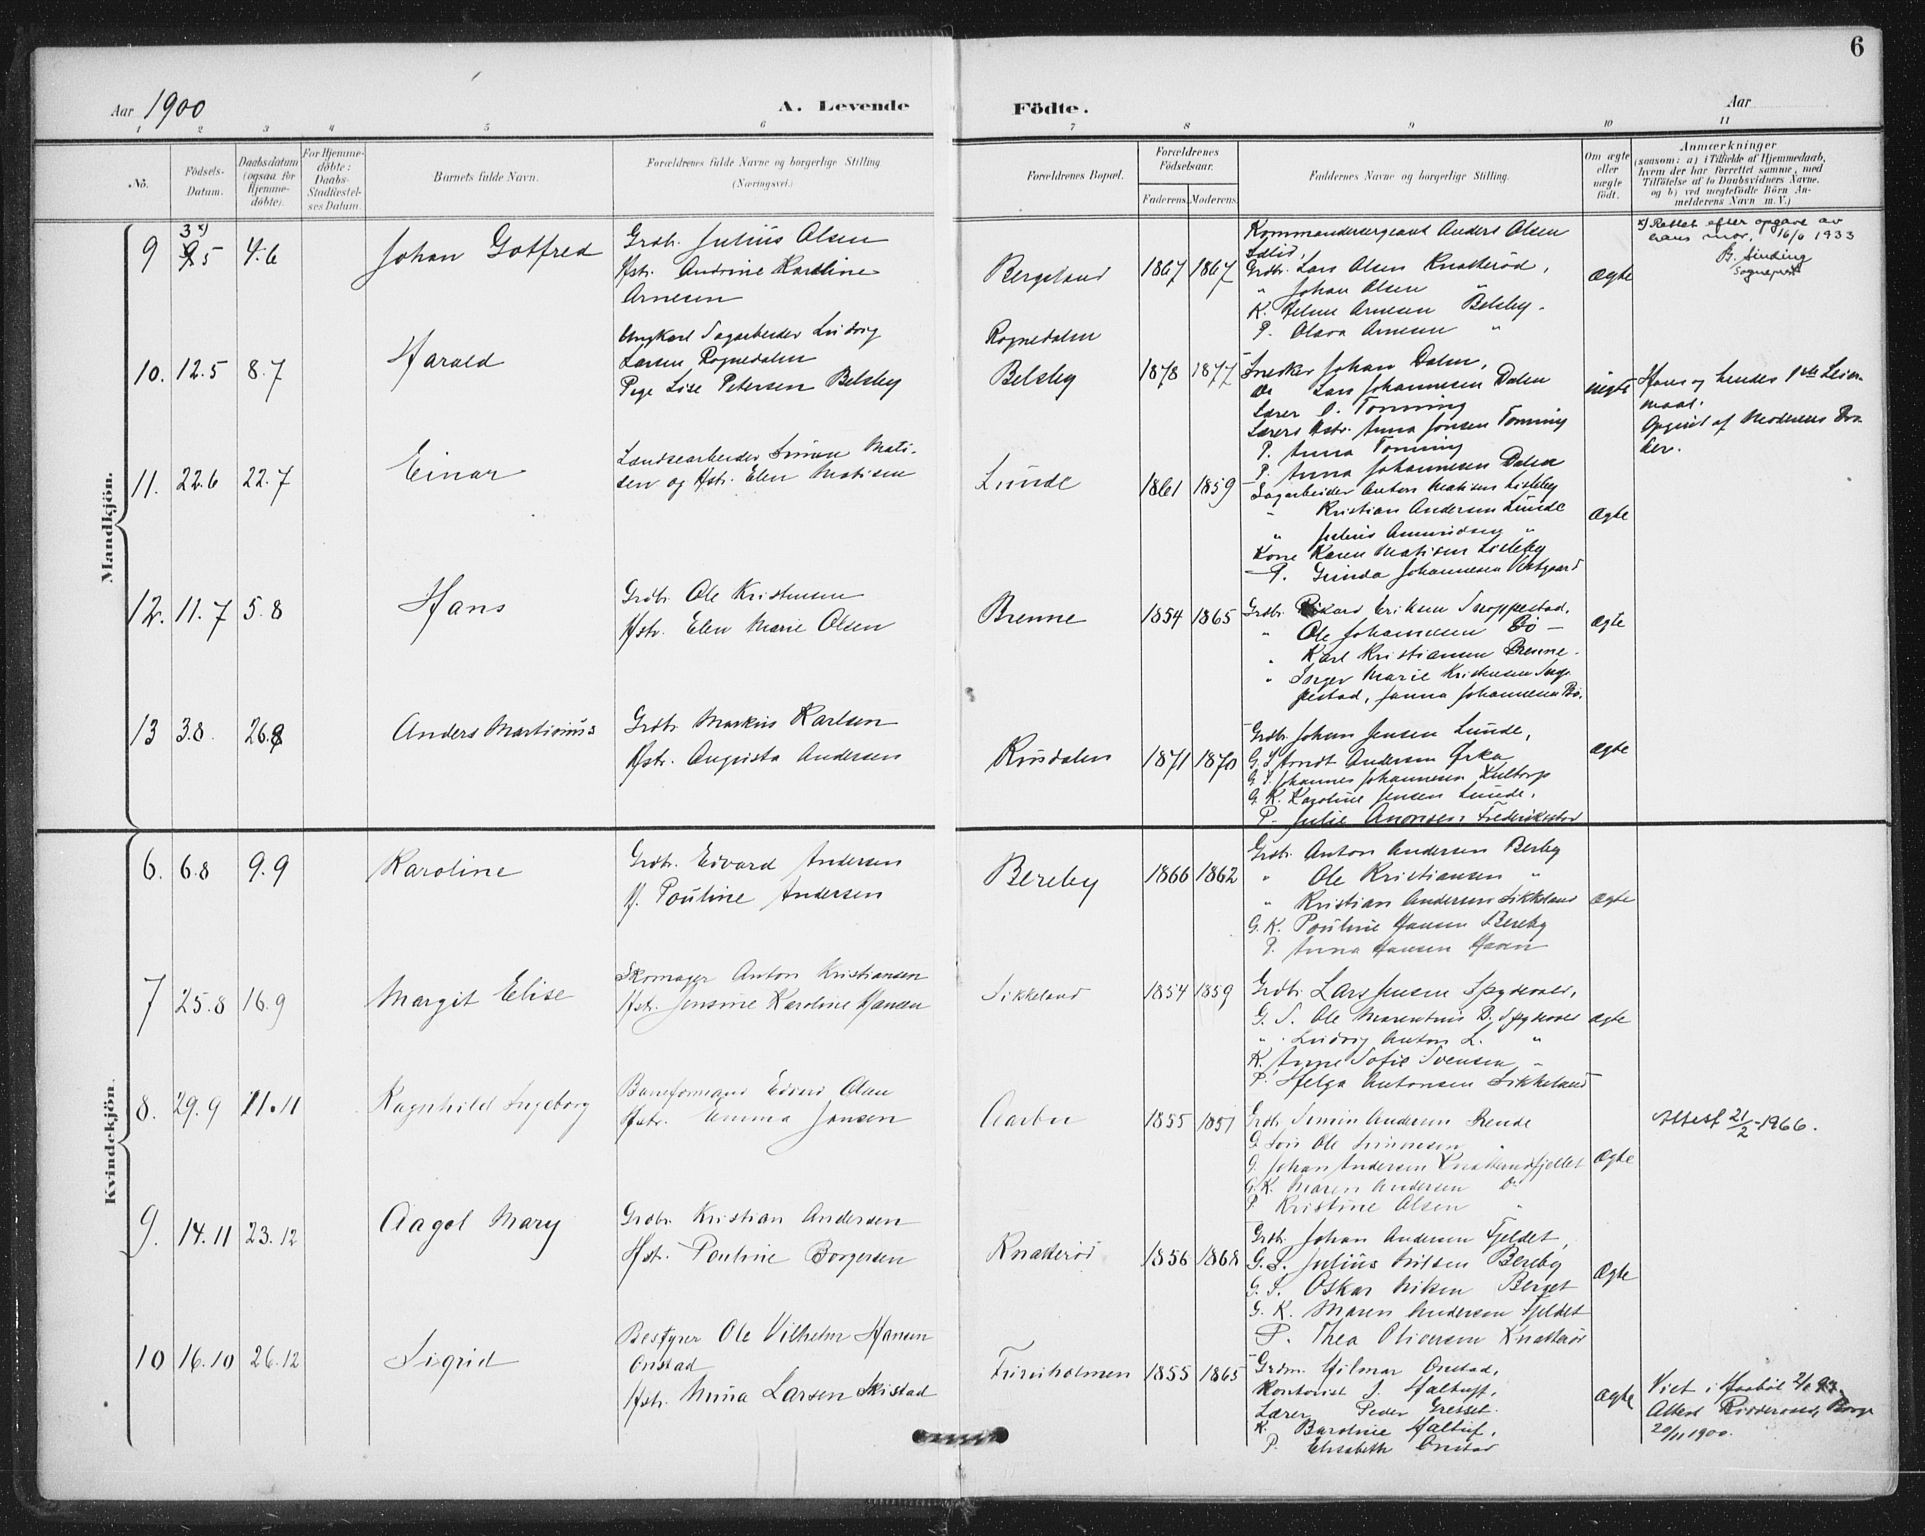 6
Aar 1900
A. Levende
Födte.
Aar
1 2 3 4 5 6 7 8 9 10 11
No.
Födsels-Datum.
Daabsdatum (ogsaa for Hjemmedöbte).
For Hjemmedöbte: Daabs-Stadfæstelses Datum.
Barnets fulde Navn.
Forældrenes fulde Navne og borgerlige Stilling
(Næringsvei.)
Forældrenes Bopæl.
Forældrenes Födselsaar.
Faderens. Moderens.
Faddernes Navne og borgerlige Stilling.
Om ægte eller uægte födt.
Anmærkninger
(saasom: a) i Tilfælde af Hjemmedaab,
hvem der har forrettet samme, med
Tilföielse af to Daabsvidners Navne.
og b) ved uægtefödte Börn An-
melderens Navn m. V.)
Mandkjön.
9 3x) 5 4.6 Johan Gotfred
Grdbr. Julius Olsen
Hstr. Andrine Karoline
Arnesen
Bergeland 1867 1867
Kommandersergeant Anders Olsen
Grdbr. Lars Olsen Knatterød,
" Johan Olsen "
K. Helene Arnesen Belsby.
P. Olava Arnesen "
Ægte
x) Rettet efter opgave av
hans mor, 16/6 1933
B. Sinding
Sogneprest
10. 12.5 8.7 Harald
Ungkarl Sagarbeider Ludvig
Larsen Rognedalen
Pige Lise Petersen Belsby
Rognedalen
Belsby 1878 1877
Snedker Johan Dalen,
do Lars Johannesen Dalen
Lærer O. Tonning
Lærers Hstr. Anna Jonsen Tonning
P. Anna Tonning
P. Anna Johannesen Dalen
uægte
Hans og hendes 1ste Leier-
maal.
Opgivet af Moderens Bro-
der.
11. 22.6 22.7 Einar
Landsearbeider Simon Mati-
sen og Hstr. Elen Matisen
Lunde 1861 1859
Sagarbeider Anton Matisen Lisleby
" Kristian Andersen Lunde
" Julius Amundsen "
Kone Karen Matisen Lisleby
P. Gunda Johannesen
Ægte
12. 11.7 5.8 Hans
Grdbr. Ole Kristensen
Hstr. Elen Marie Olsen
Brenne 1854 1865
Grdbr. Rikard Eriksen Snoppestad.
" Ole Johannesen Bö
" Karl Kristiansen Brenne.
" Inger Marie Kristensen Snop-
pestad, Janna Johannesen Bö.
Ægte
13 3.8. 26.8 Anders Martinius
Grdbr Markus Karlsen
Hstr. Augusta Andersen
Rusdalen 1871 1870
Grdbr. Johan Jensen Lunde,
G. S. Arndt Andersen Ørka
G. S. Johannes Johannesen Kultorp
G. K. Karoline Jensen Lunde,
P. Julie Aronsen Frederikstad
Ægte
Kvindekjön.
6. 6.8 9.9 Karoline
Grdbr. Edvard Andersen
H. Pouline Andersen
Bereby 1866 1862
Grdbr. Anton Andersen Berby
" Ole Kristiansen "
" Kristian Andersen Sikkeland
G. K. Pouline Hansen Bereby
P. Anna Hansen Haven
Ægte
7 25.8 16.9 Margit Elise
Skomager Anton Kristiansen
Hstr. Jensine Karoline Hansen
Sikkeland 1854 1859
Grdbr. Lars Jensen Spydevold,
G. S. Ole Marentius B. Spydevold
" Ludvig Anton L. "
K. Anne Sofie Svensen
P. Helga Antonsen Sikkeland
Ægte
8. 29.9 11.11 Ragnhild Ingeborg
Baneformand Edvard Olsen
Hstr. Emma Jansen
Aarbu 1855 1857
Grdbr Simen Andersen
G. Sön Ole Simensen
G. Johan Andersen Knatterødfjellet
G. K. Maren Andersen do
P. Kristine Olsen "
Ægte
Attest 21/2-1966.
9. 14.11 23.12 Aagot Mary
Grdbr Kristian Andersen
Hstr. Pouline Borgersen
Knatterød 1856 1868
Grdbr. Johan Andersen Fjeldet,
G. S. Julius Nilsen Bereby
G. S. Oskar Nilsen Berget
G. K. Maren Andersen Fjeldet
P. Thea Oliversen Knatterød
Ægte
10 16.10 26.12 Sigrid
Bestyrer Ole Vilhelm Hansen
Onstad
Hstr. Anna Larsen Skistad
Furuholmen 1855 1865
Grdm. Hilmar Onstad,
Kontorist J. Halthuf,
Lærer Peder Gresset.
K. Baroline Halthuf,
P. Elisabeth Onstad
Ægte
Viet i
20/11 1900.